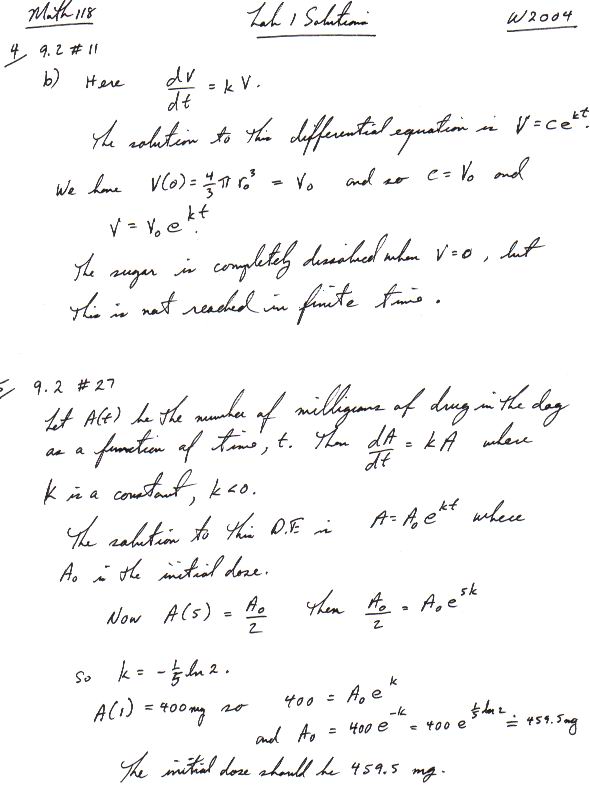 Math 118 Lab 1 Solutions W2004
4 9.2 #11
b) Here dV/dt = kV.
The solution to this differential equation is V = ce^{kt}.
We have V(0) = 4/3 π r₀³ = V₀ and so c = V₀ and
V = V₀e^{kt}.
The sugar is completely dissolved when V=0, but
this is not reached in finite time.
5 9.2 #27
Let A(t) be the number of milligrams of drug in the dog
as a function of time, t. Then dA/dt = kA where
k is a constant, k<0.
The solution to this D.E. is A = A₀e^{kt} where
A₀ is the initial dose.
Now A(5) = A₀/2 Then A₀/2 = A₀e^{5k}
So k = -1/5 ln 2.
A(1) = 400mg so 400 = A₀e^{k}
and A₀ = 400e^{-k} = 400e^{1/5 ln 2} ≐ 459.5mg
The initial dose should be 459.5 mg.